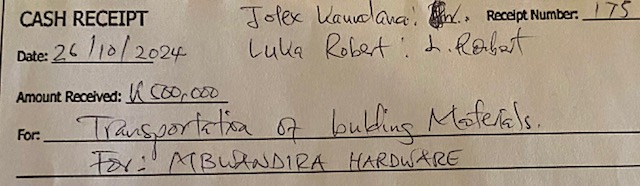 CASH RECEIPT Jofex Kamdanai: Receipt Number: 175
Date: 26/10/2024 Luka Robert: L. Robert
Amount Received: K500,000
For: Transportation of building Materials.
For: MBWANDIRA HARDWARE